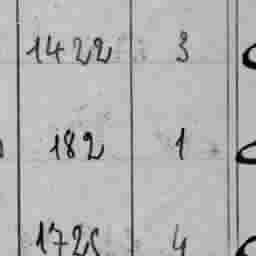 1422 3
182 1
1725 4